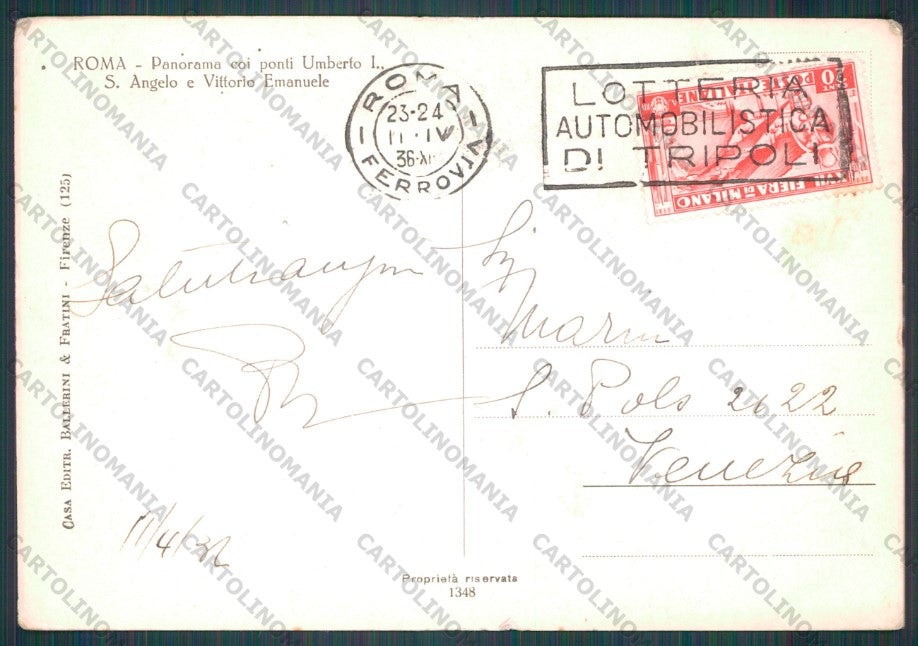 ROMA - Panorama coi ponti Umberto I.,
S. Angelo e Vittorio Emanuele
ROMA
23-24
11·IV
36·XI
FERROVIA
LOTTERIA
AUTOMOBILISTICA
DI TRIPOLI
POSTE ITALIANE
XVII FIERA DI MILANO
CASA EDITR. BALLERINI & FRATINI - Firenze (125)
S. Polo 2622
Venezia
11/4/
Proprietà riservata
1348
CARTOLINOMANIA